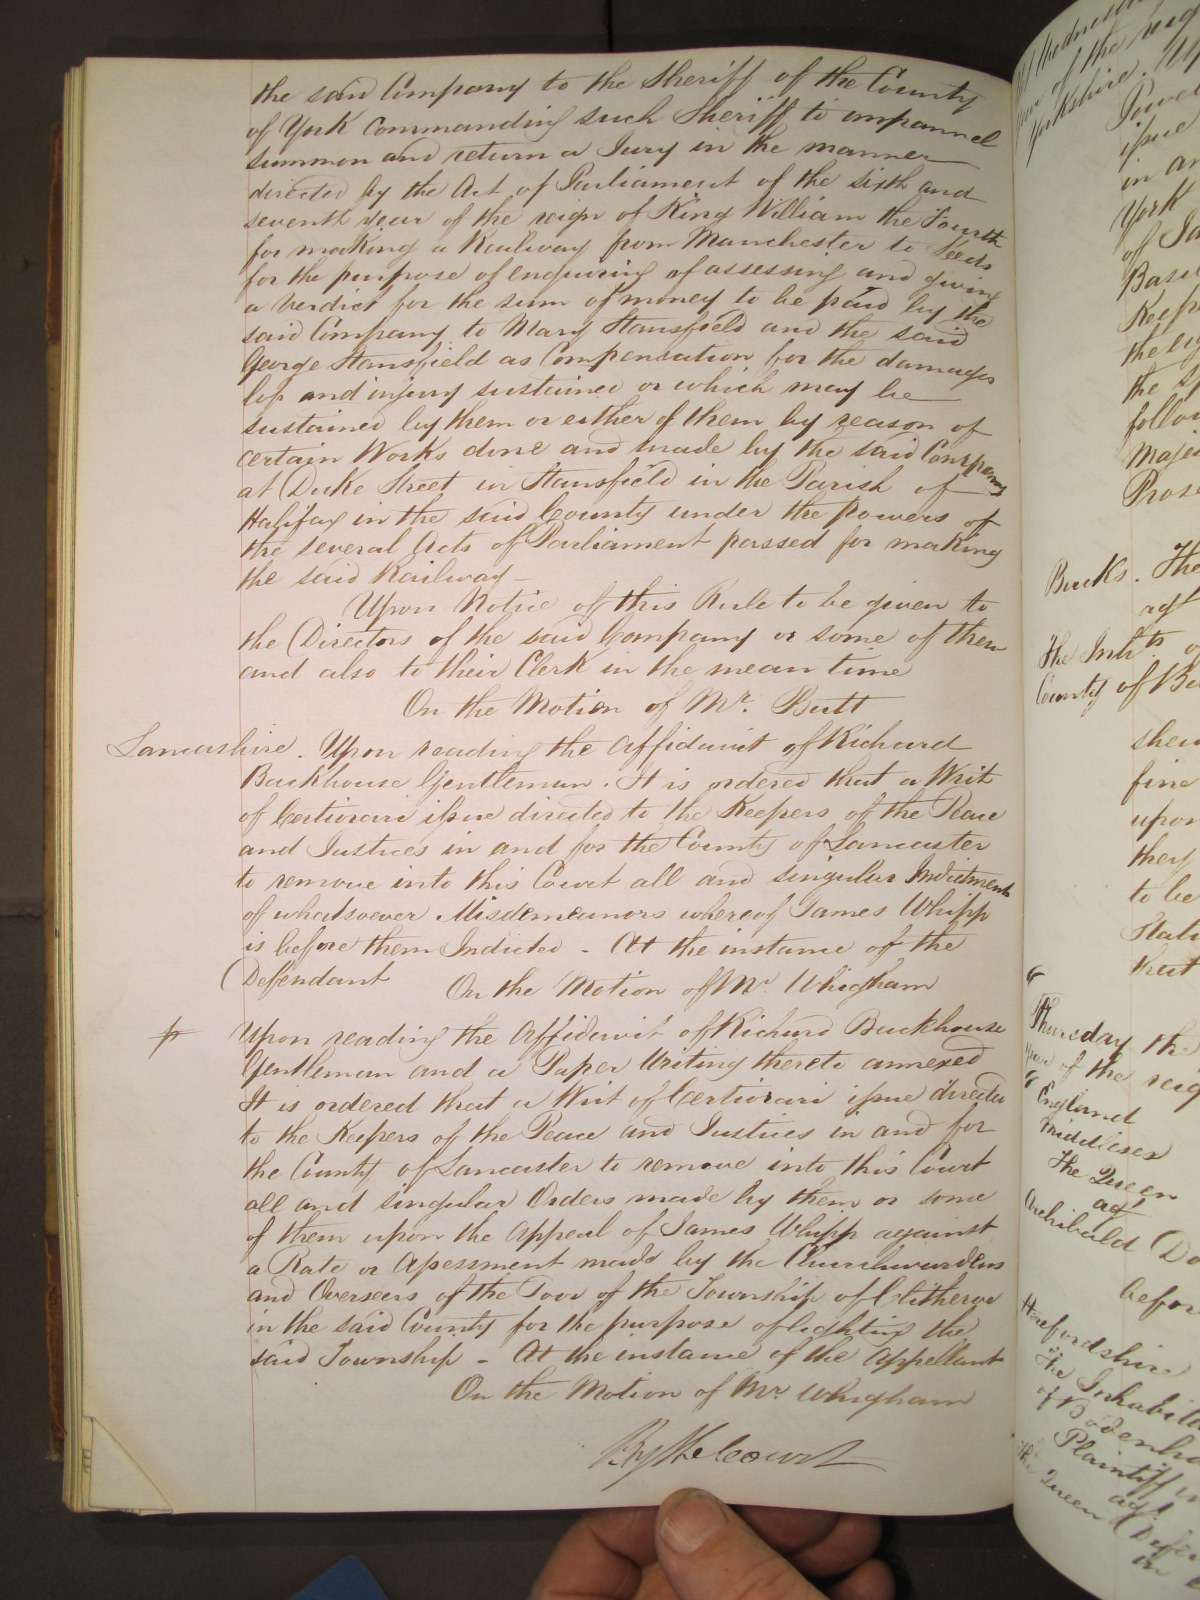 the said Company to the Sheriff of the County
of York Commanding such Sheriff to impannel
summon and return a Jury in the manner
directed by the Act of Parliament of the sixth and
seventh year of the reign of King William the Fourth
for making a Railway from Manchester to Leeds
for the purpose of enquiring of assessing and giving
a verdict for the sum of money to be paid by the
said Company to Mary Stansfield and the said
George Stansfield as Compensation for the damages
loss and injury sustained or which may be
sustained by them or either of them by reason of
certain Works done and made by the said Company
at Duke Street in Stansfield in the Parish of
Halifax in the said County under the powers of
the several Acts of Parliament passed for making
the said Railway –
Upon Notice of this Rule to be given to
the Directors of the said Company or some of them
and also to their Clerk in the mean time
On the Motion of Mr. Butt
Lancashire. Upon reading the Affidavit of Richard
Backhouse Gentleman. It is ordered that a Writ
of Certiorari issue directed to the Keepers of the Peace
and Justices in and for the County of Lancaster
to remove into this Court all and singular Indictments
of whatsoever Misdemeanors whereof James Whipp
is before them Indicted – At the instance of the
Defendant On the Motion of Mr. Whigham
Upon reading the Affidavit of Richard Backhouse
Gentleman and a Paper Writing thereto annexed
It is ordered that a Writ of Certiorari issue directed
to the Keepers of the Peace and Justices in and for
the County of Lancaster to remove into this Court
all and singular Orders made by them or some
of them upon the Appeal of James Whipp against
a Rate or Assessment made by the Churchwardens
and Overseers of the Poor of the Township of Clitheroe
in the said County for the purpose of lighting the
said Township – At the instance of the Appellant
On the Motion of Mr. Whigham
By the Court
of the reig
Yorkshire.
issue
in an
York
of
Keep
the
the
follow
Bucks. The
agt
The Inhts o
County of Bu
shew
fine
upon
they
to be
that
Thursday the
of the reig
England
Middlesex
The Queen
agt
Archibald Do
befor
Herefordshire
The Inhabita
of Bodenha
Plaintiff
agt
The Queen Defe
in